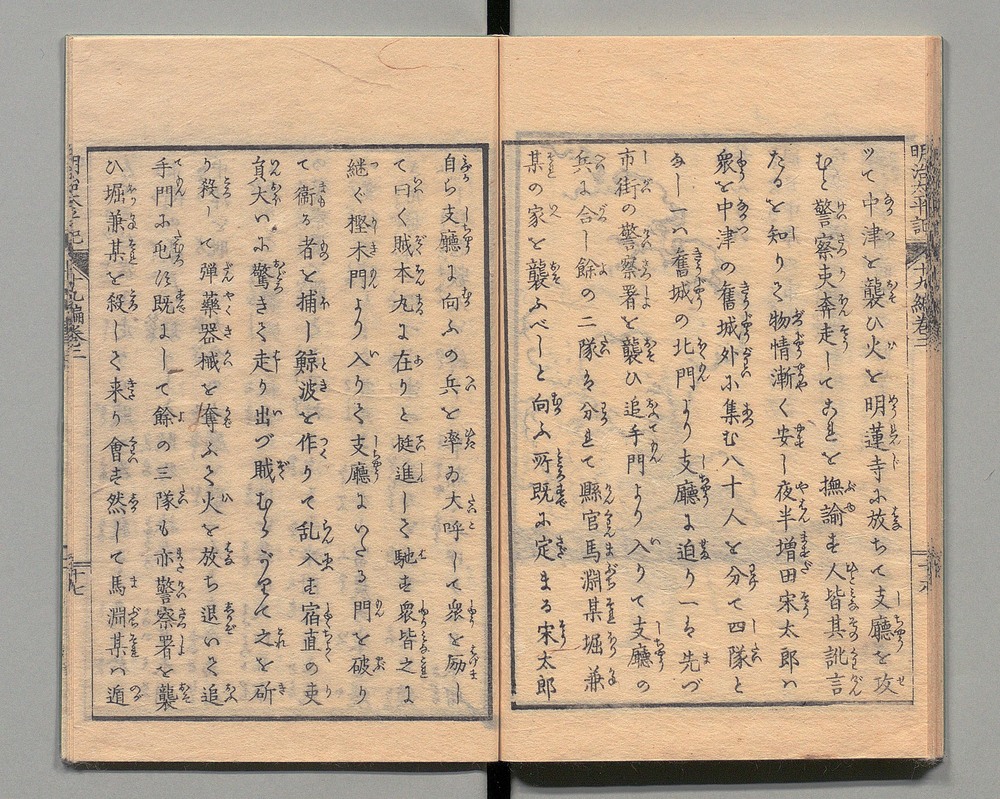 明治太平記 十九編巻二
ツて中津を襲ひ火を明蓮寺に放ちて支廳を攻
むと警察吏奔走して之を撫諭す人皆其訛言
たるを知りて物情漸く安し夜半増田宋太郎ハ
衆を中津の舊城外に集む八十人を分て四隊と
なし一ハ舊城の北門より支廳に迫り一ハ先づ
市街の警察署を襲ひ追手門より入りて支廳の
兵に合し餘の二隊は分れて縣官馬淵某堀兼
某の家を襲ふべしと向ふ所既に定まる宋太郎
自ら支廳に向ふの兵を率ゐ大呼して衆を励し
て曰く賊本九に在りと挺進して馳す衆皆之に
継ぐ樫木門より入りて支廳にいたる門を破り
て衞る者を捕し鯨波を作りて乱入す宿直の吏
員大いに驚きて走り出づ賊むらがりて之を斫
り殺して彈藥器械を奪ふて火を放ち退いて追
手門に屯ス既にして餘の三隊も亦警察署を襲
ひ堀兼某を殺して来り會す然して馬淵某ハ遁
明治太平記 十九編巻二
十七